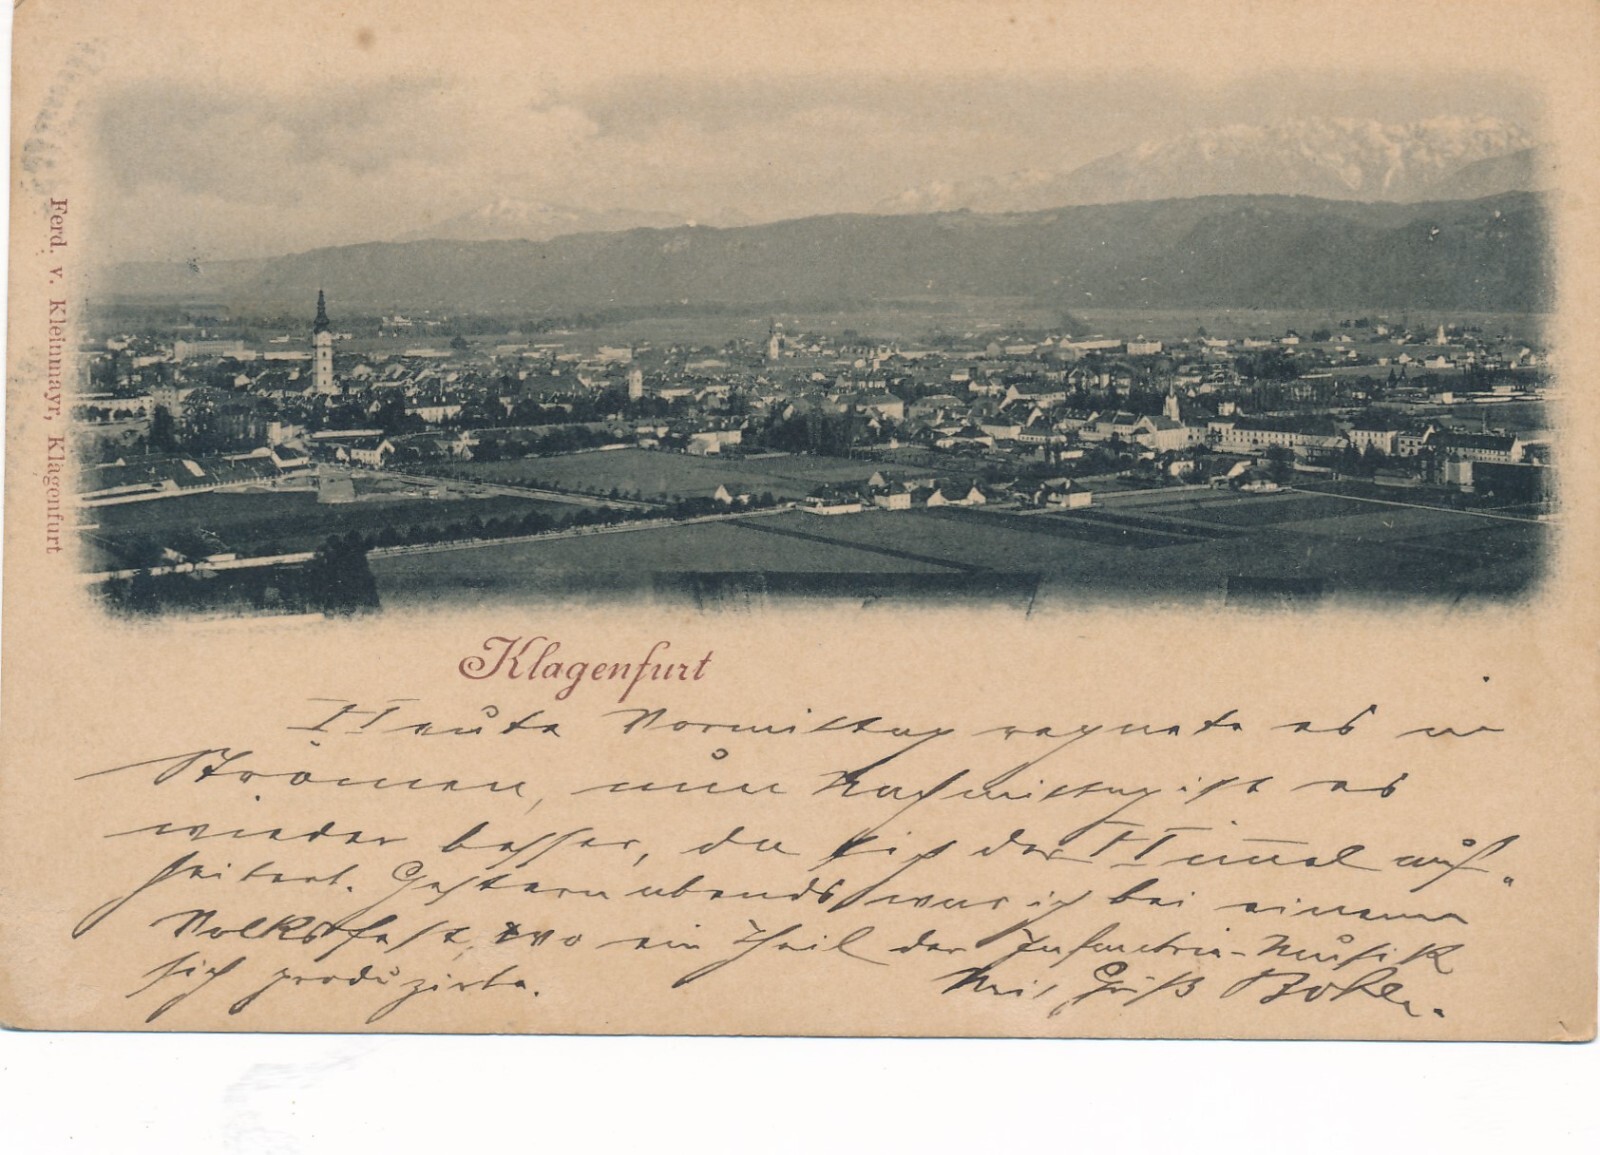 Ferd. v. Kleinmayr, Klagenfurt
Klagenfurt
Heute Vormittag regnete es in
Strömen, nun Nachmittag ist es
wieder besser, da sich der Himmel auf-
heitert. Gestern abends war ich bei einem
Volksfest, wo ein Theil der Infanterie-Musik
sich produzirte.
Mit Gruß